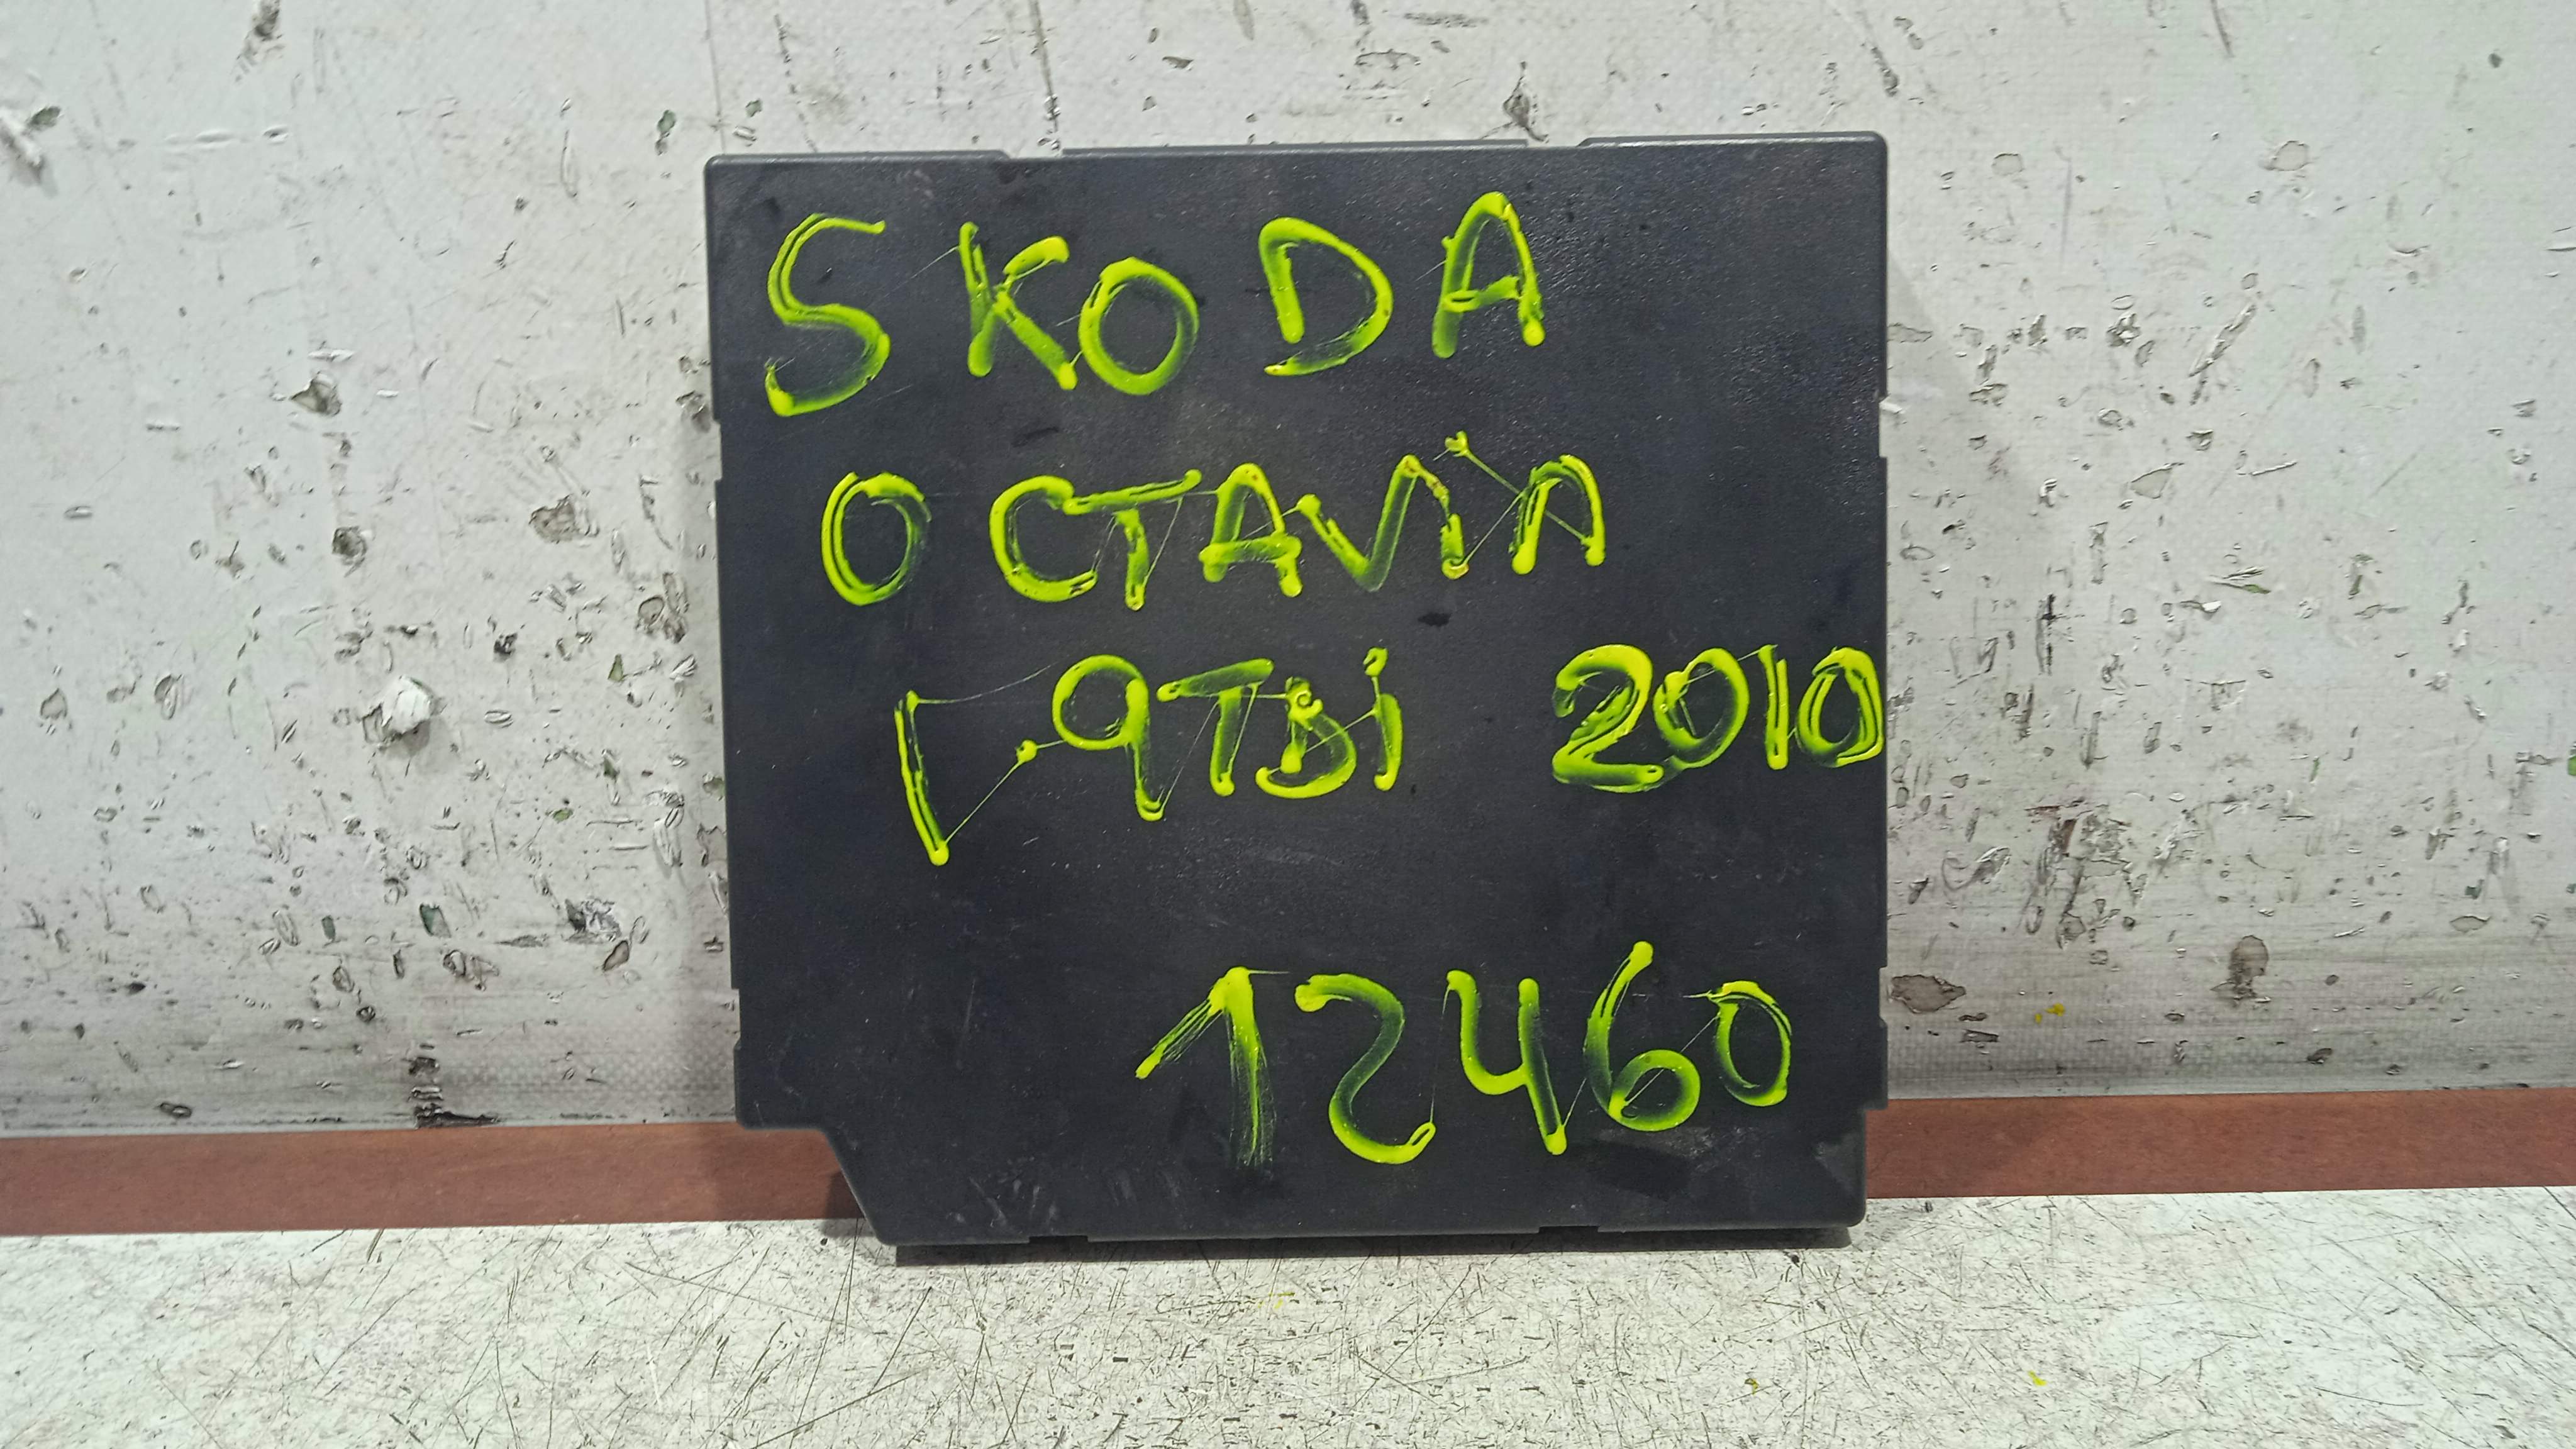 SKODA
OCTAVIA
1.9TDi 2010
12460